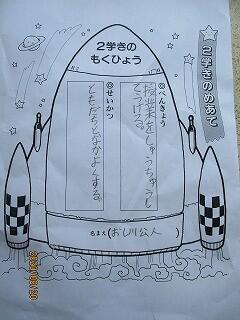 2学きのめあて
2学きの
もくひょう
◎べんきょう
授業をしゅうちゅうし
てうける。
◎せいかつ
ともだちとなかよくする。
名まえ(おし川公人)